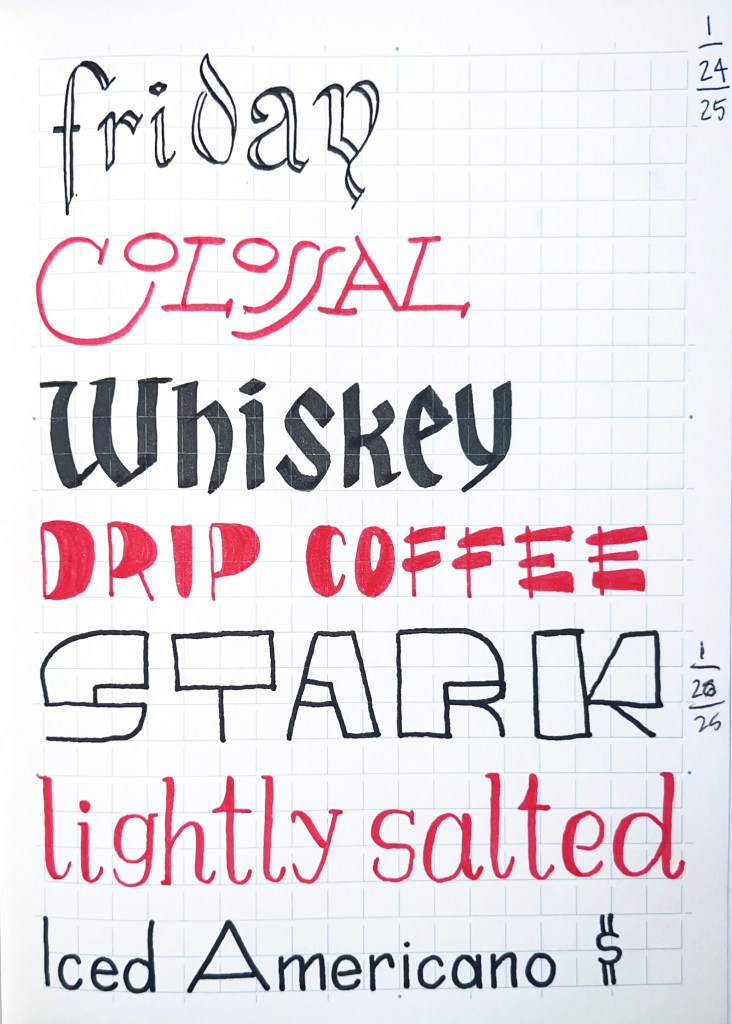 1
24
25
friday
COLOSSAL
Whiskey
DRIP COFFEE
STARK
1
25
lightly salted
Iced Americano $